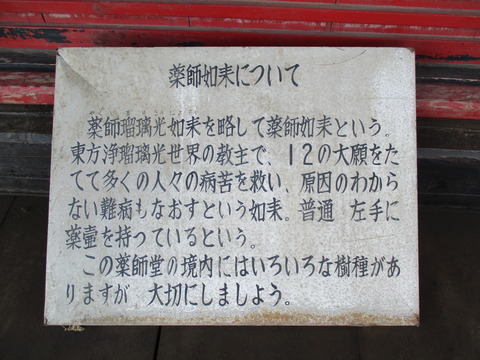 薬師如来について
薬師瑠璃光如来を略して薬師如来という。
東方浄瑠璃光世界の教主で、12の大願をた
てて多くの人々の病苦を救い、原因のわから
ない難病もなおすという如来。普通 左手に
薬壷を持っているという。
この薬師堂の境内にはいろいろな樹種があ
りますが 大切にしましょう。